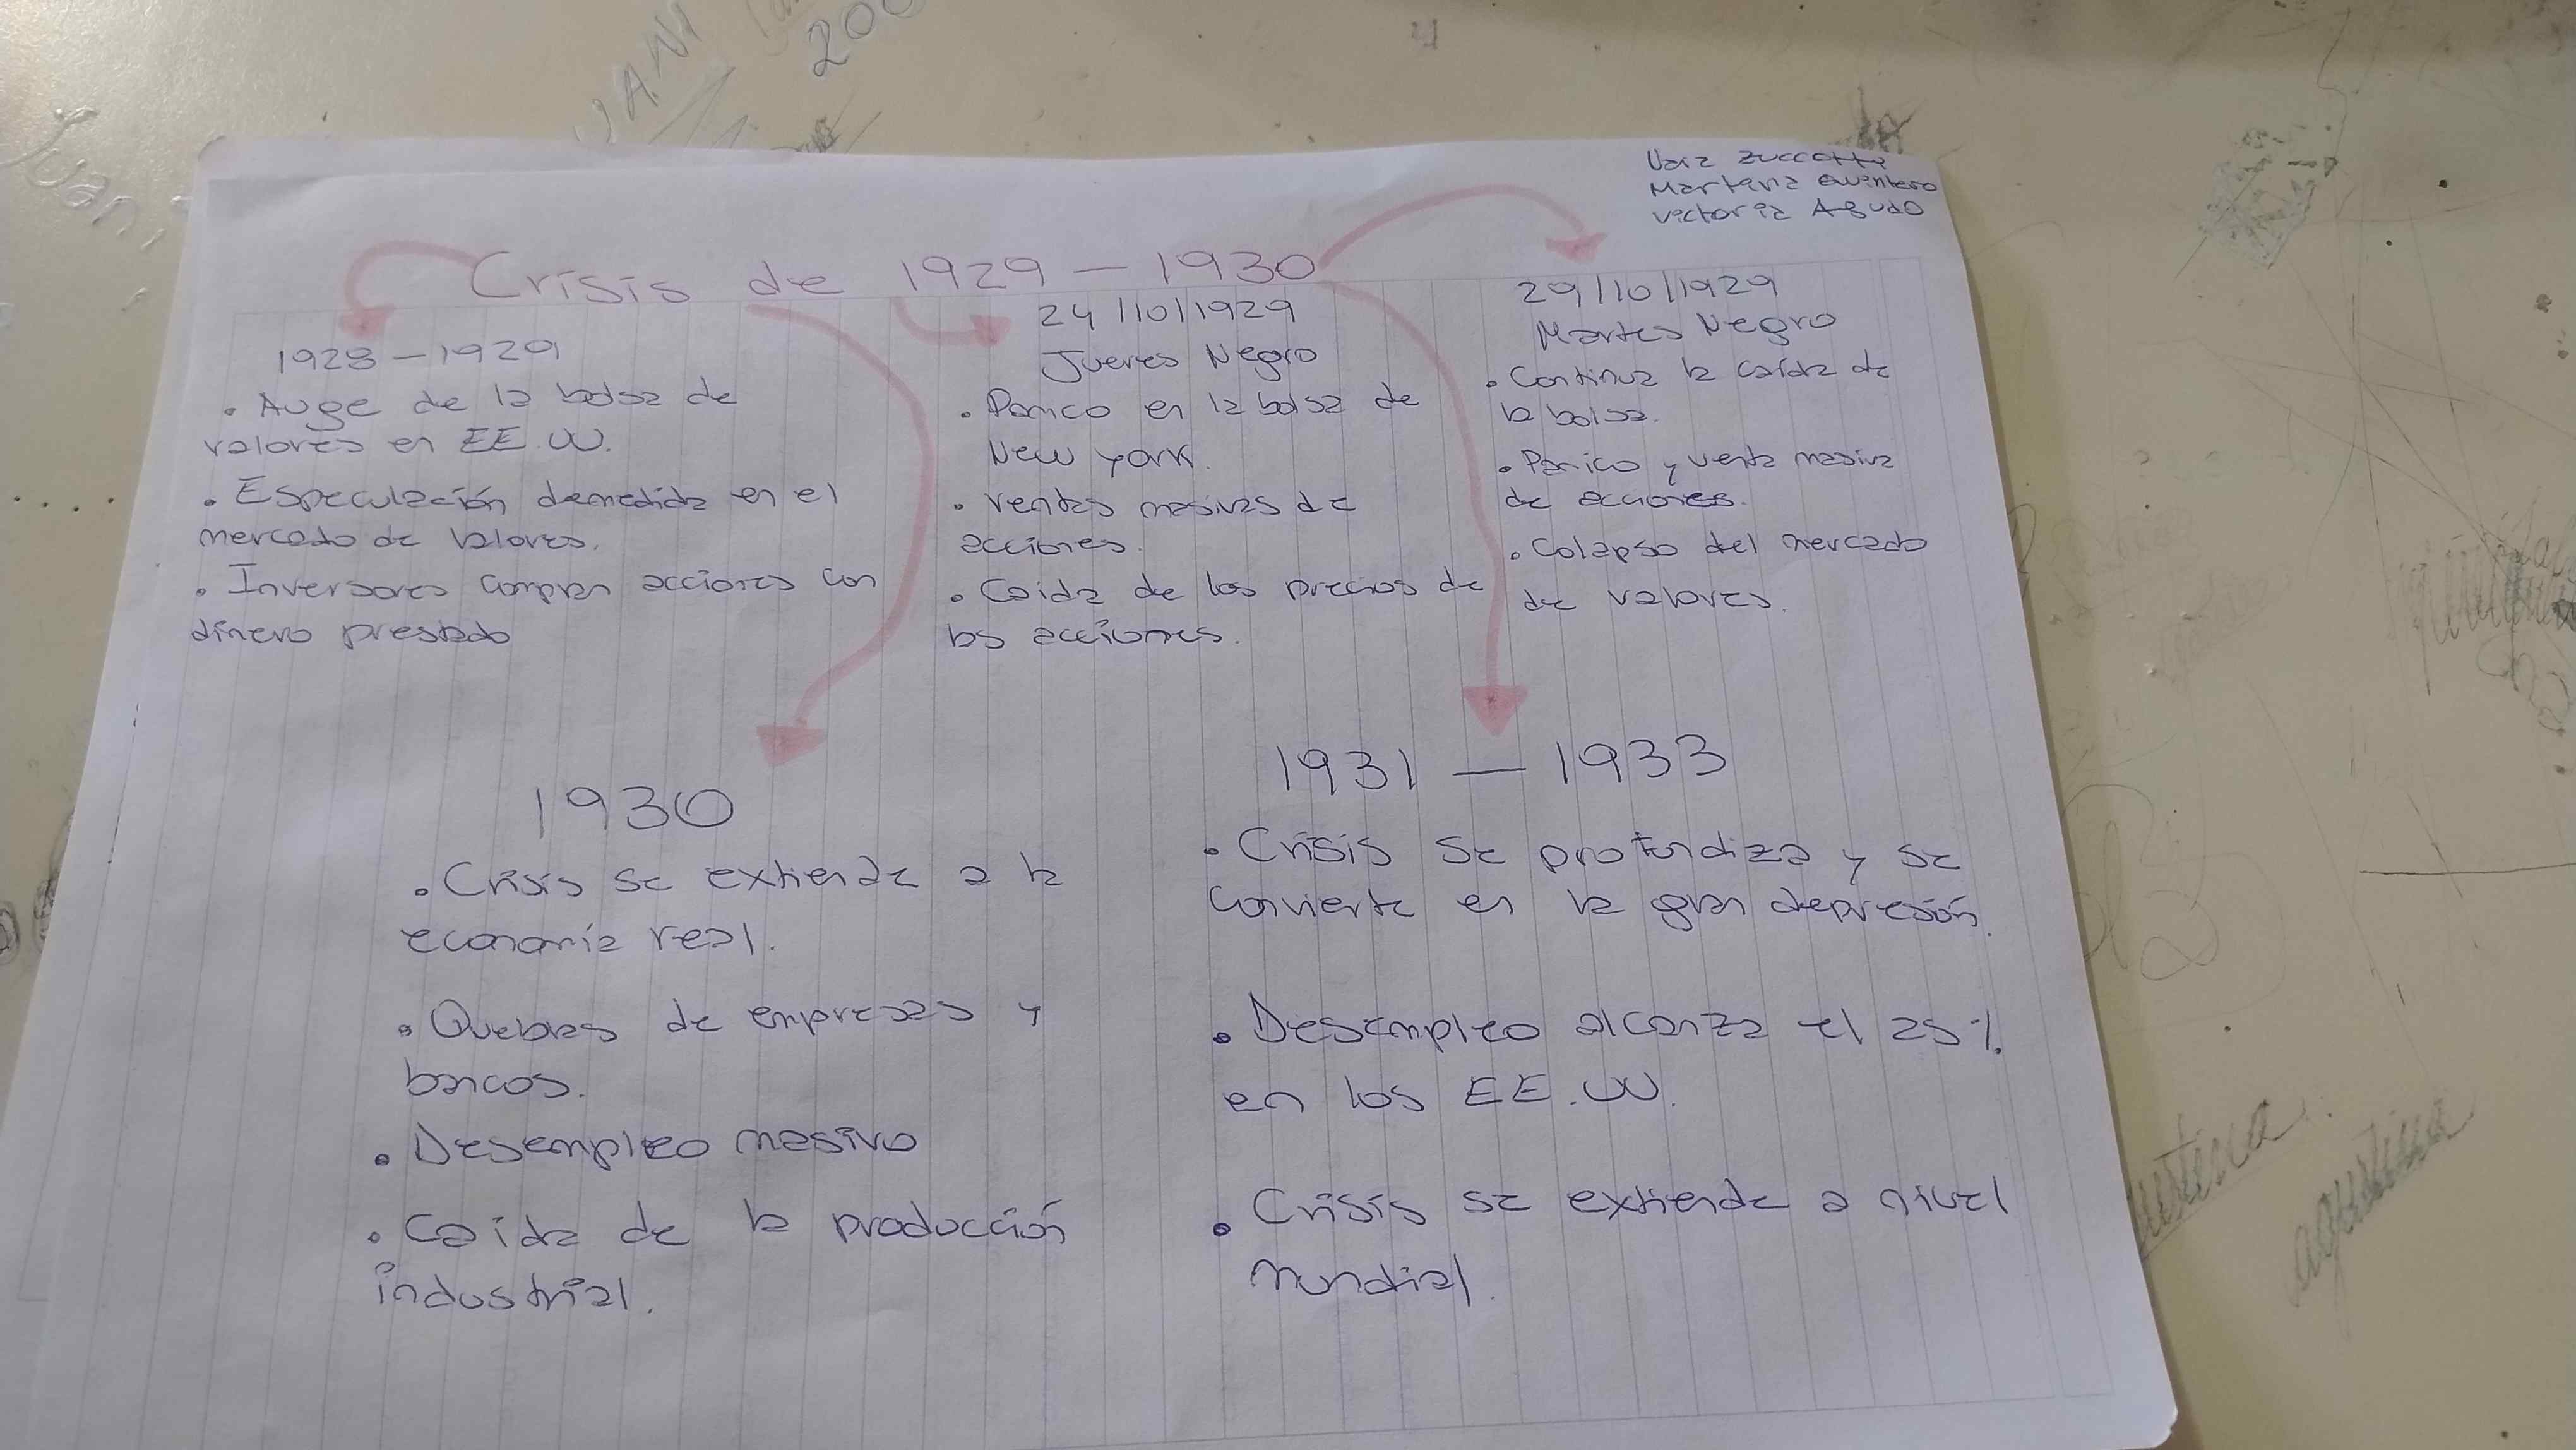 JUANI
200
Juani
Zuccotti
Martina Quintero
Victoria Agudo
Crisis de 1929 - 1930
1928 - 1929
. Auge de la bolsa de
valores en EE.UU.
. Especulación demedida en el
mercado de valores.
. Inversores compran acciones con
dinero prestado
24/10/1929
Jueves Negro
. Panico en la bolsa de
New York.
. ventas masivas de
acciones.
. Caida de los precios de
las acciones.
29/10/1929
Martes Negro
. Continua la caída de
la bolsa.
. Panico y venta masiva
de acciones.
. Colapso del mercado
de valores.
1930
. Crisis se extiende a la
economía real.
. Quebras de empresas y
bancos.
. Desempleo masivo
. Caída de la producción
industrial.
1931 - 1933
. Crisis se profundiza y se
convierte en la gran depresión.
. Desempleo alcanza el 25%
en los EE.UU.
. Crisis se extiende a nivel
mundial.
agustina